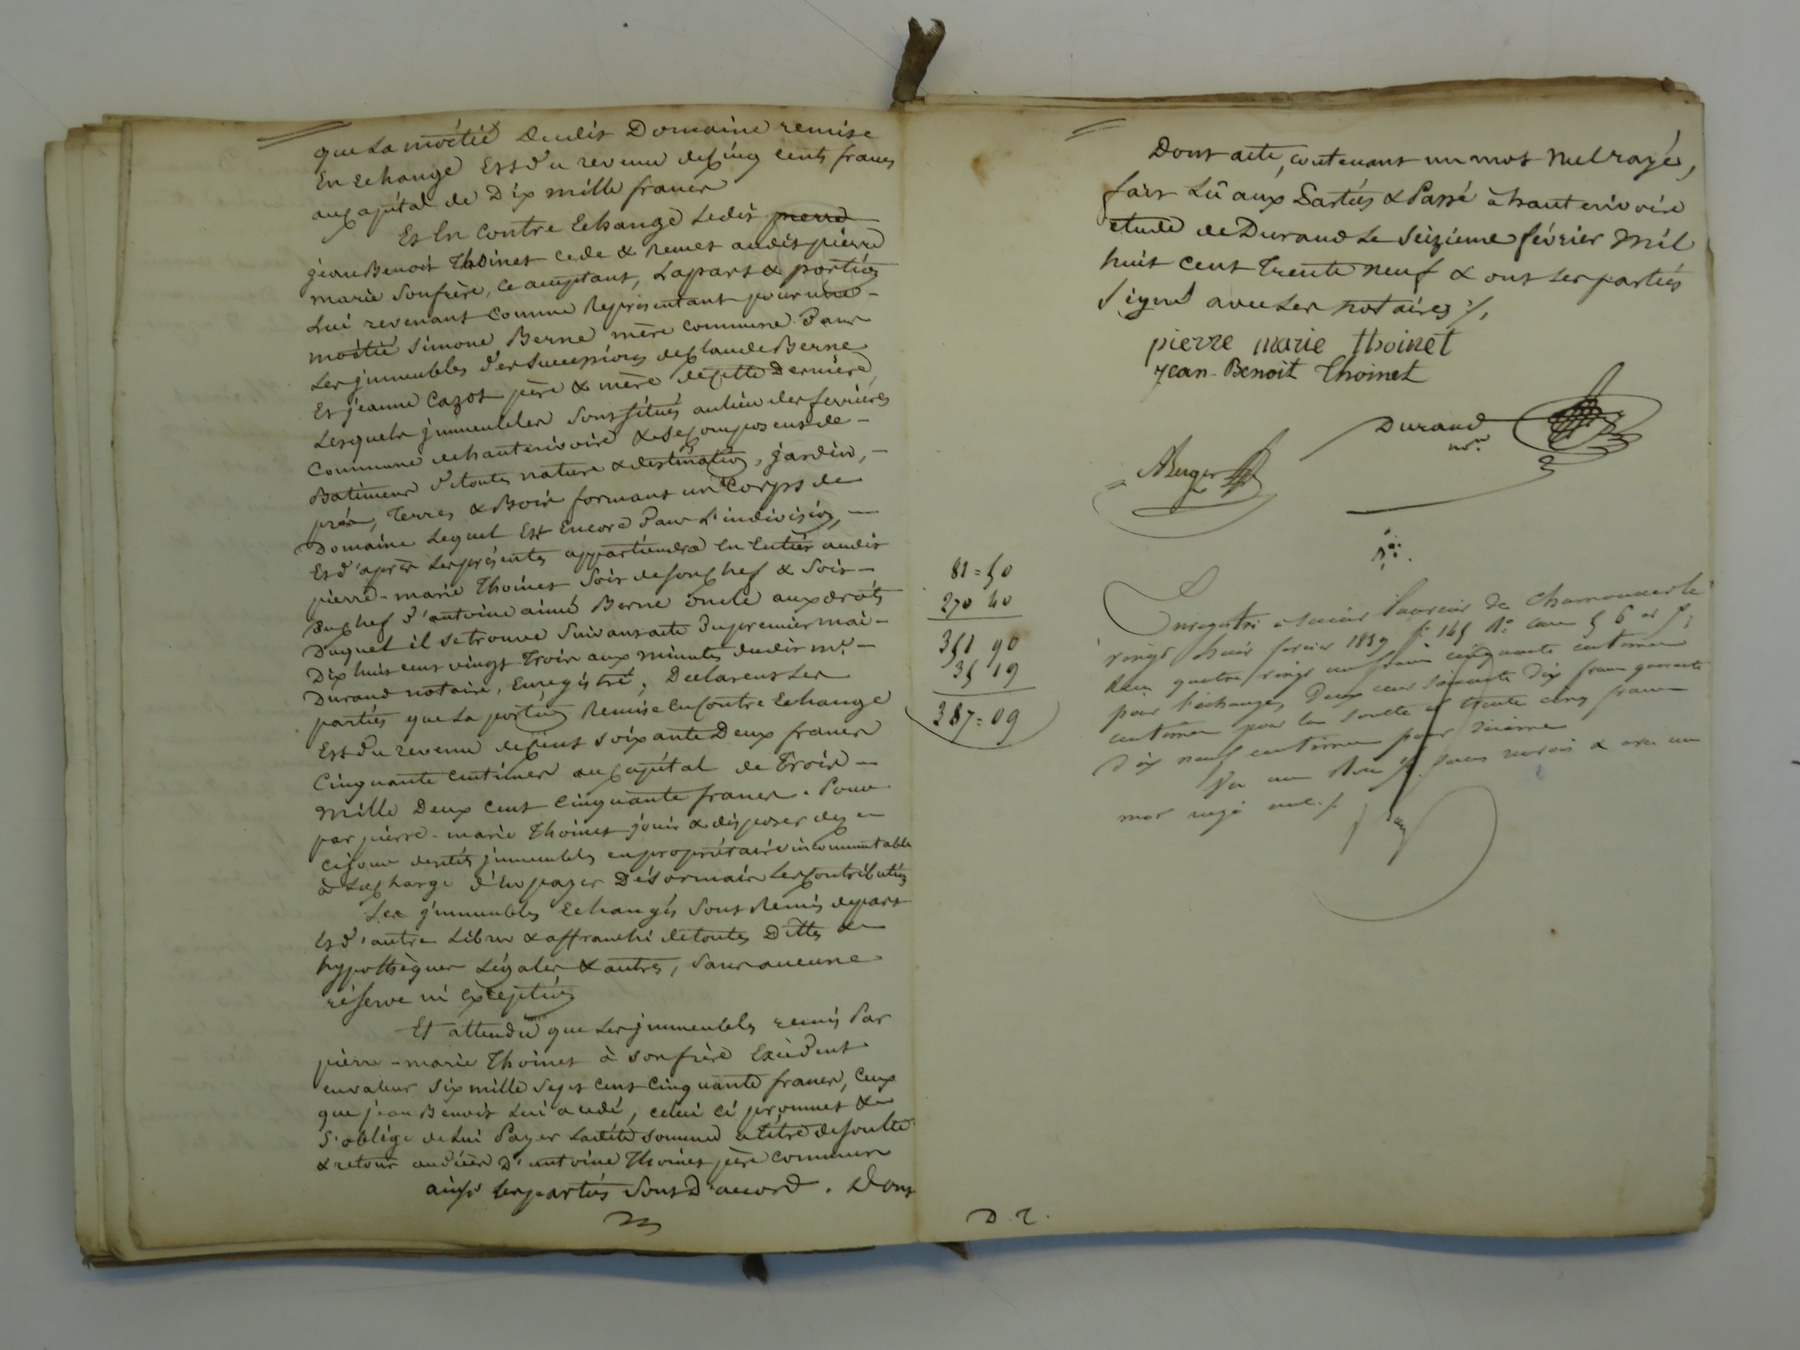 que la moitié dudit Domaine remise
En echange Est d'u revenu de cinq cents francs
au capital de Dix mille francs
Et En contre Echange Ledit pierre
jean Benoit Thoinet cede & Remet audit pierre
marie Son frère, ce acceptant, La part & portion
Lui revenant comme Représentant pour une
moitié Simone Berne mère commune Dans
Les jmmeubles d'es successions de Claude Berne
Et jeanne Cazot père & mère de cette Dernière,
Lesquels jmmeubles Sont situés au lieu des ferrières
Commune de hauterivoire & se composent de
Batiments d'e toutes nature & destination, jardin,
prés, Terres & Bois formant un Corps de
Domaine Lequel Est Encore Dans L'indivision,
Et d'après Les présentes appartiendra En Entier audit
pierre-marie Thoinet Soit de son chef & Soit
du chef d'antoine aimé Berne oncle aux droits
Duquel il se trouve Suivant acte du premier mai
Dix huit cent vingt Trois aux minutes dudit me
Durand notaire, Enregistré; Declarent Les
parties que La portion Remise En Contre Echange
Est d'u revenu de Cent soixante Deux francs
Cinquante centimes au capital de Trois
mille Deux cent Cinquante francs. Pour
par pierre-marie Thoinet jouir & disposer dès
ce jour desdits jmmeubles en propriétaire incommutable
à La charge d'En payer Désormais Les Contributions
Les jmmeubles Echangés Sont Remis de part
Et d'autre Libres & affranchi de toutes Dettes &
hypothèques Légales & autres, Sans aucune
réserve ni Exception
Et attendu que Les jmmeubles remis Par
pierre-marie Thoinet à son frère Excèdent
en valeur Six mille Sept cent Cinquante francs, Ceux
que jean Benoit Lui a cédé, celui ci promet &
S'oblige de Lui Payer Ladite somme a titre de soulte
& retour au décès D'antoine Thoinet père commun
ainsi Les parties Sont D'accord. Dont
Dont acte, contenant un mot Nul rayé,
fait Lû aux Parties & Passé à hauterivoire
etude de Durand Le Seizieme février Mil
huit cent Trente neuf & ont Les parties
Signé avec Les notaires ./.
pierre marie thoinet
jean-Benoit Thoinet
Durand
nre.
ABerger
81=50
270 40
351 90
35 19
387=09
Enregistré a Saint Laurent de Chamousset le
vingt huit fevrier 1839 fo 145 Ro case 5 6 et 7,
Reçu quatre vingt un francs cinquante centimes
pour l'échange, Deux cent soixante dix francs quarante
centimes pour la soulte et trente cinq francs
dix neuf centimes pour dixieme
mot rayé nul ./.
D. T.